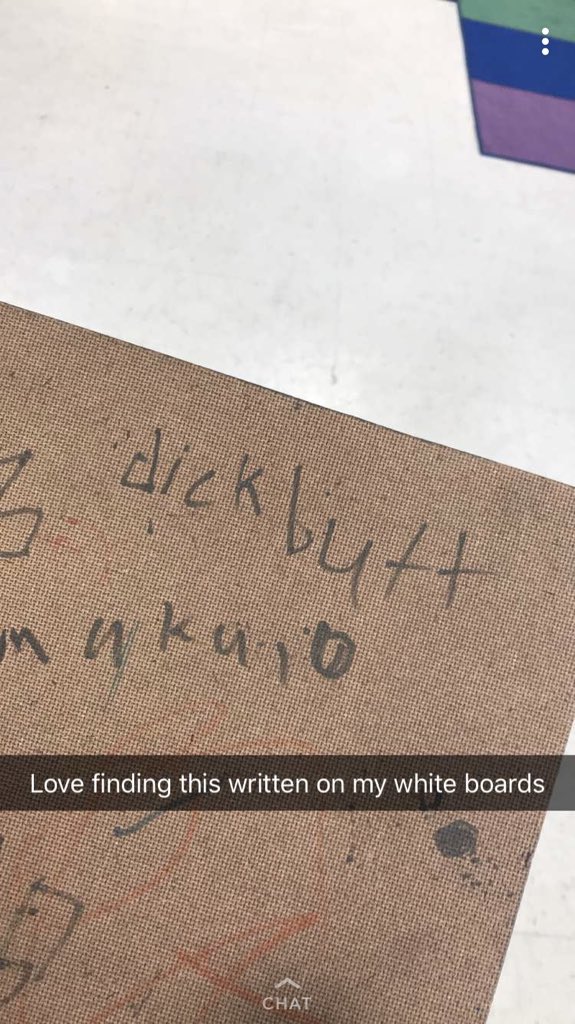 dick butt
Love finding this written on my white boards
CHAT